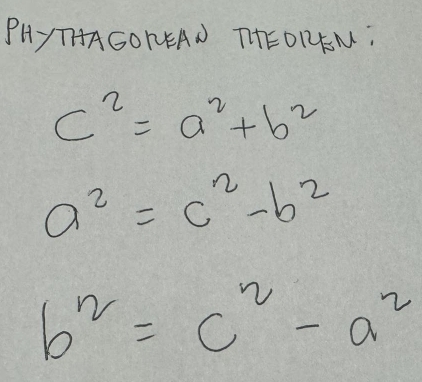 PHYTHAGOREAN THEOREM:
c² = a² + b²
a² = c² - b²
b² = c² - a²